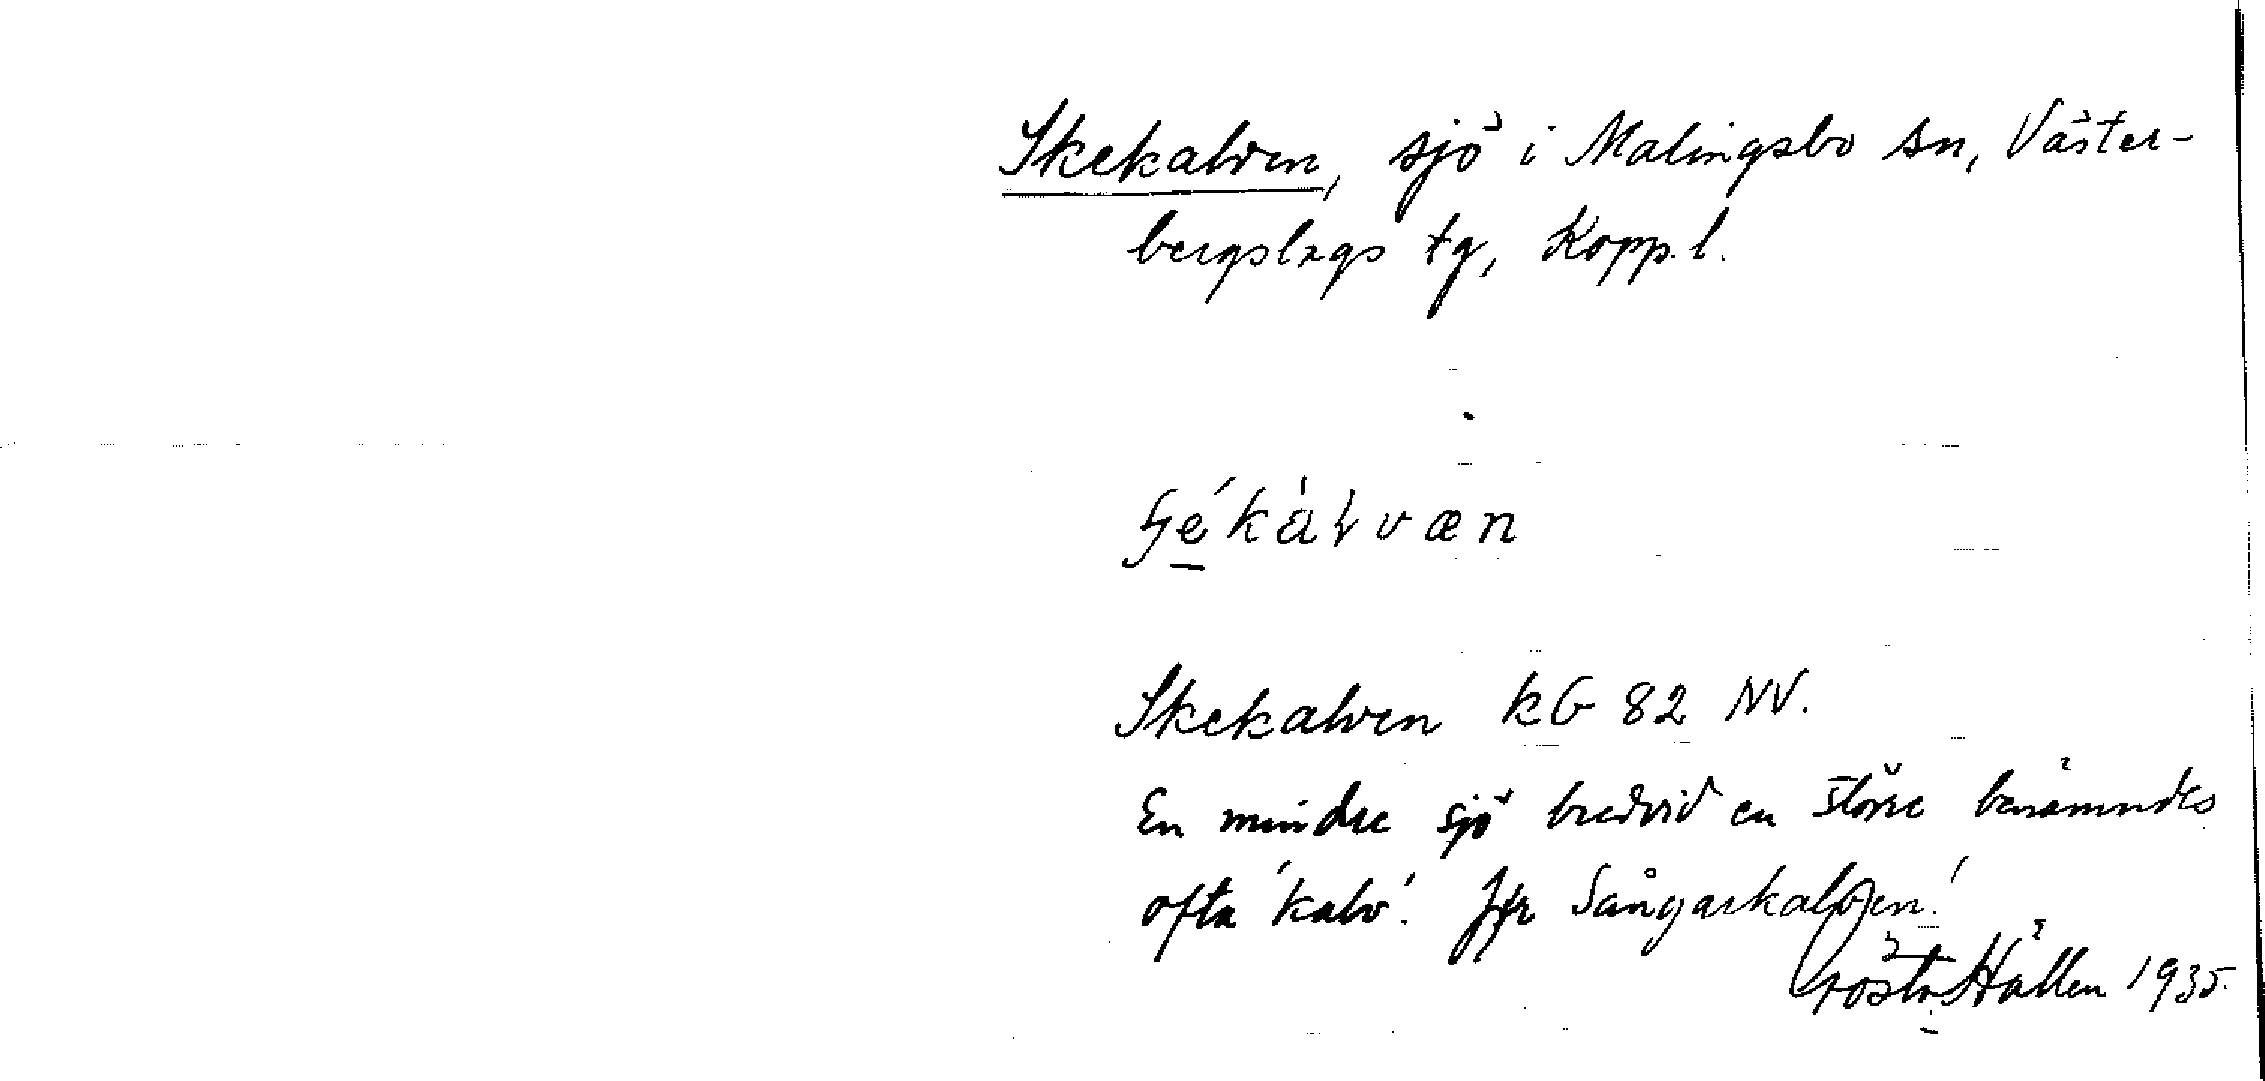 Skekalven, sjö i Malingsbo sn, Väster-
bergslags tg, Kopp. l.
ʃé̲kàɫvæn
Skekalven kG 82 NV.
En mindre sjö bredvid en större benämndes
ofta 'kalv'. Jfr Sångarkalven!
Gösta Hållen 1935.